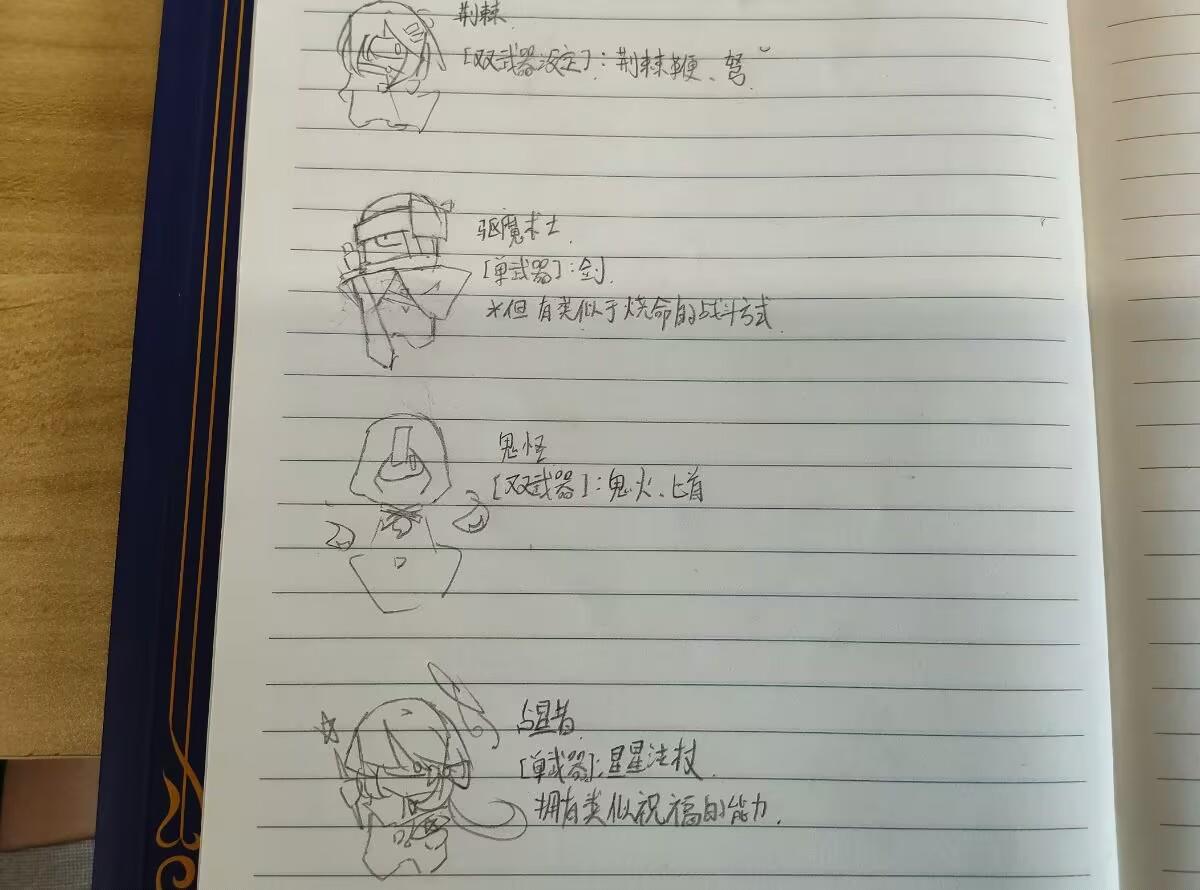 荆棘
[双武器设定]:荆棘鞭、弩
驱魔术士.
[单武器]:剑.
*但有类似于烧命的战斗方式.
鬼怪
[双武器]:鬼火、匕首
占星者.
[单武器]:星星法杖.
拥有类似祝福的能力.